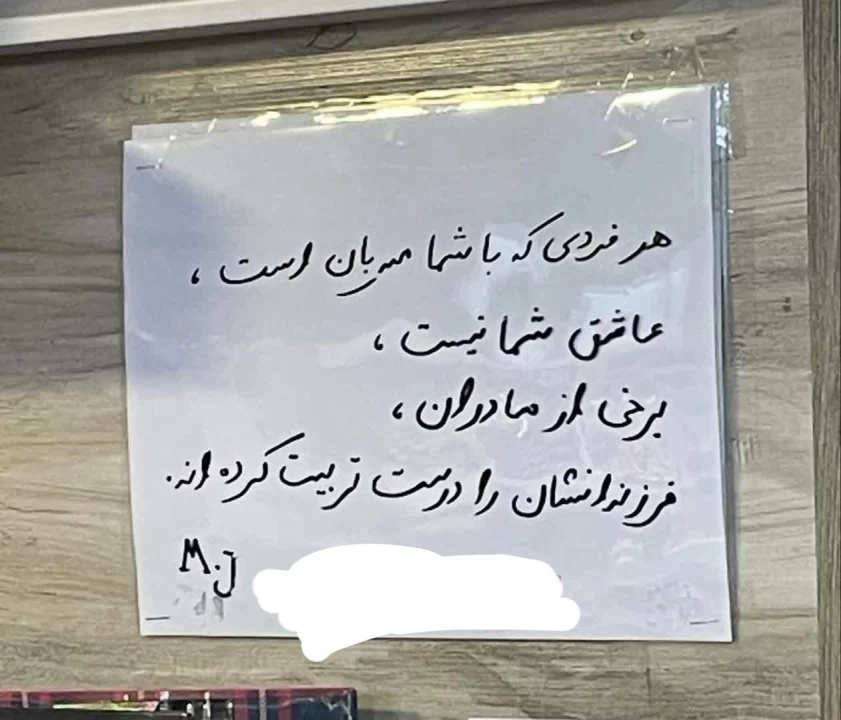 هر فردی که با شما مهربان است،
عاشق شما نیست،
برخی از مادران،
فرزندانشان را درست تربیت کرده اند.
M.J